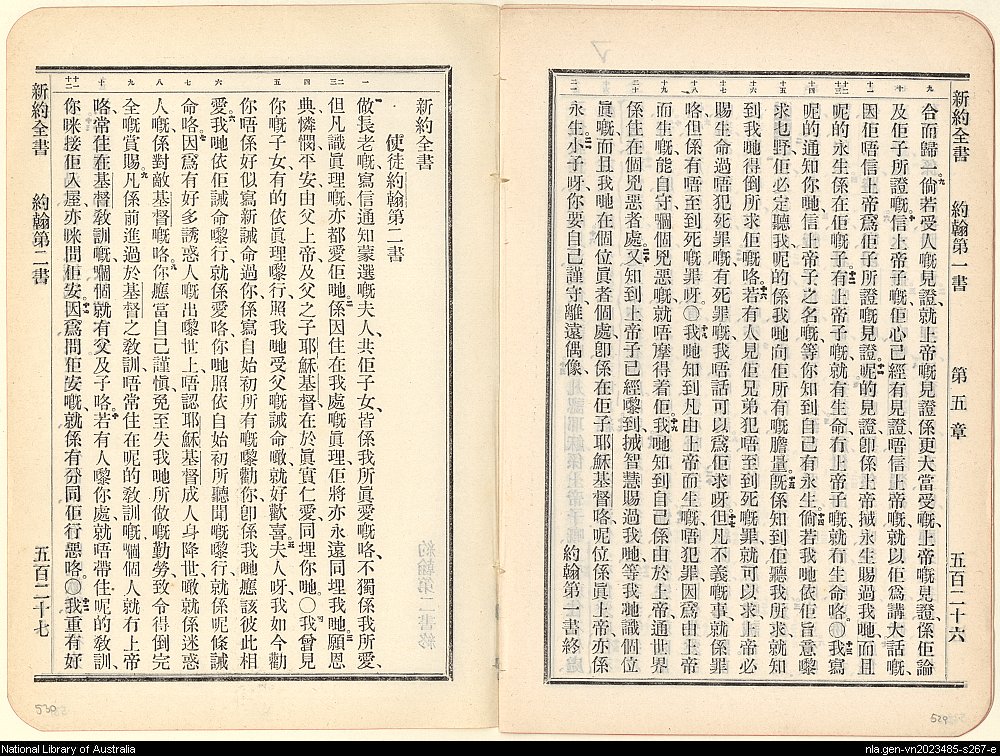 新約全書 約翰第一書 第五章 五百二十六
九 十 十一 十二 十三 十四 十五 十六 十七 十八 十九 二十 二一
合而歸一、倘若受人嘅見證、就上帝嘅見證係更大當受嘅、上帝嘅見證係佢論
及佢子所證嘅。信上帝子嘅佢心己經有見證唔信上帝嘅就以佢爲講大話嘅、
因佢唔信上帝爲佢子所證嘅見證。呢的見證卽係上帝𢬿永生賜過我哋、而且
呢的永生係在佢嘅子。有上帝子嘅就有生命冇上帝子嘅就冇生命咯。〇我寫
呢的通知你哋信上帝子之名嘅、等你知到自己有永生。倘若我哋依佢旨意嚟
求乜野佢必定聽我、呢的係我哋向佢所有嘅膽量。旣係知到佢聽我所求就知
到我哋得倒所求佢嘅咯。若有人見佢兄弟犯唔至到死嘅罪就可以求上帝必
賜生命過唔犯死罪嘅、有死罪嘅我唔話可以爲佢求呀。但凡不義嘅事就係罪
咯但係有唔至到死嘅罪呀。〇我哋知到凡由上帝而生嘅唔犯罪因爲由上帝
而生嘅能自守嗰個兇惡嘅就唔摩得着佢。我哋知到自己係由於上帝通世界
係住在個兇惡者處。又知到上帝子己經嚟到𢬿智慧賜過我哋等我哋識個位
眞嘅而且我哋在個位眞者個處卽係在佢子耶穌基督咯呢位係眞上帝亦係
永生。小子呀你要自己謹守離遠偶像、 約翰第一書終
新約全書 約翰第二書 五百二十七
一 二 三 四 五 六 七 八 九 十 十一 十二
新約全書
使徒約翰第二書
做長老嘅寫信通知蒙選嘅夫人、共佢子女、皆係我所眞愛嘅咯、不獨係我所愛、
但凡識眞理嘅亦都愛佢哋。係因住在我處嘅眞理佢將亦永遠同埋我哋。願恩
典憐憫平安由父上帝及父之子耶穌基督、在於眞實仁愛同埋你哋。〇我曾見
你嘅子女有的依眞理嚟行、照我哋受父嘅誡命噉就好歡喜。夫人呀、我如今勸
你唔係好似寫新誡命過你、係寫自始初所有嘅嚟勸你、卽係我哋應該彼此相
愛。我哋依佢誡命嚟行、就係愛咯、你哋照依自始初所聽聞嘅嚟行就係呢條誡
命咯。因爲有好多誘惑人嘅出嚟世上、唔認耶穌基督成人身降世、噉就係迷惑
人嘅、係對敵基督嘅咯。你應當自己謹慎、免至失我哋所做嘅勤勞、致令得倒完
全嘅賞賜。凡係前進過於基督之敎訓、唔常住在呢的敎訓嘅、嗰個人就冇上帝
咯、常住在基督敎訓嘅、嗰個就有父及子咯。若有人嚟你處、就唔帶住呢的敎訓
你咪接佢入屋、亦咪問佢安。因爲問佢安嘅、就係有分同佢行惡咯。〇我重有好
National Library of Australia
nla.gen-vn2023485-s267-e